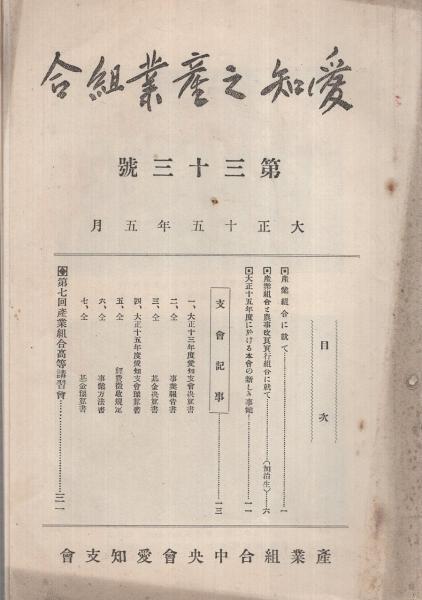 愛知之產業組合
第三十三號
大正十五年五月
目次
產業組合に就て 一
產業組合と農事改良實行組合に就て (加治生) 六
大正十五年度に於ける本會の新しき事業 一一
支會記事 一三
一、大正十三年度愛知支會決算書
二、仝 事業報告書
三、仝 基金決算書
四、大正十五年度愛知支會豫算書
五、仝 經費徵收規定
六、仝 事業方法書
七、仝 基金豫算書
第七回產業組合高等講習會 三一
產業組合中央會愛知支會